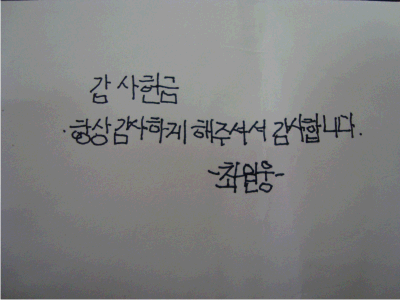 감사헌금
·항상 감사하게 해주셔서 감사합니다.
-최원웅-